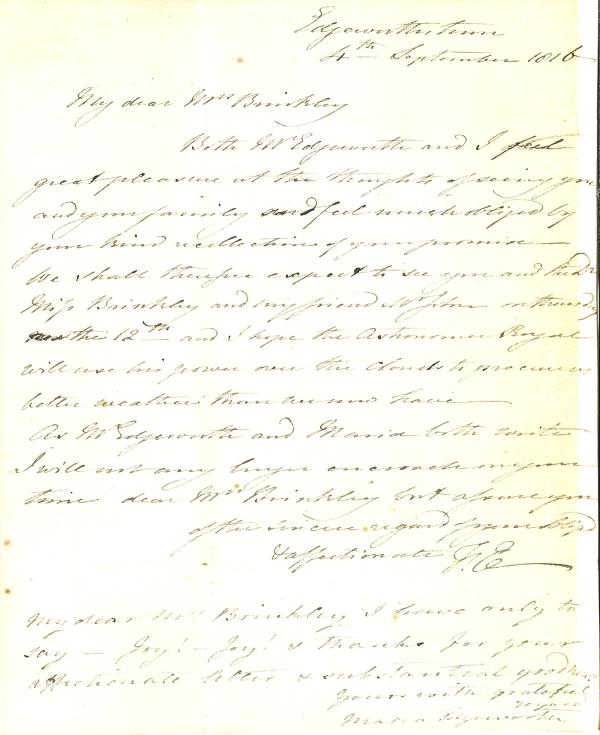 Edgeworthstown
4th September 1816
My dear Mrs Brinkley
Both Mr Edgeworth and I feel
great pleasure at the thoughts of seeing you
and your family and feel much obliged by
your kind recollection of your promise —
We shall therefore expect to see you and the Dr
Miss Brinkley and my friend Mr John on thursday
the 12th and I hope the Astronomer Royal
will use his power over the clouds to procure us
better weather than we now have —
As Mr Edgeworth and Maria both write
I will not any longer encroach on your
time dear Mrs Brinkley but assure you
of the sincere regard of your obliged
& affectionate F. E.
My dear Mrs Brinkley I have only to
say — Joy! — Joy! & thanks for your
affectionate letter & substantial goodness
Yours with grateful
regard
Maria Edgeworth